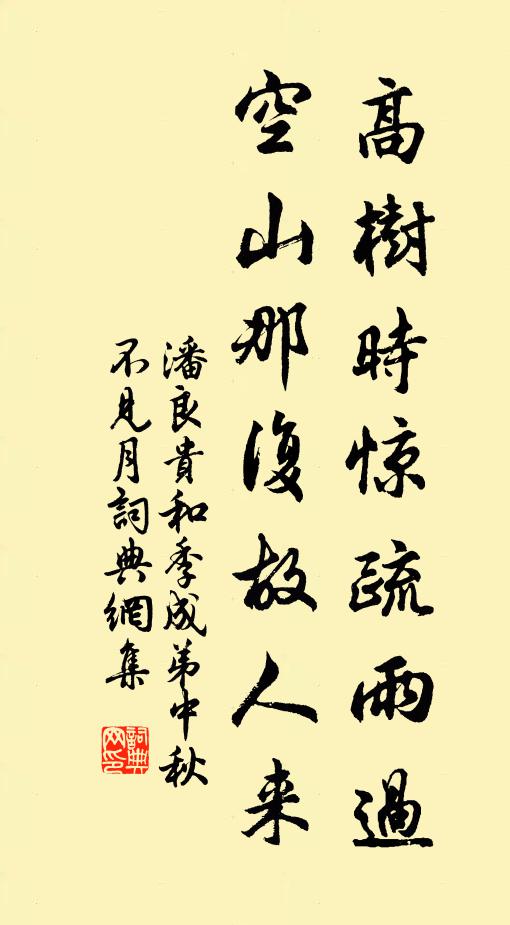 高樹時惊疏雨過
空山那復故人来
潘良貴和季成弟中秋
不見月詞典網集
詞典
网印